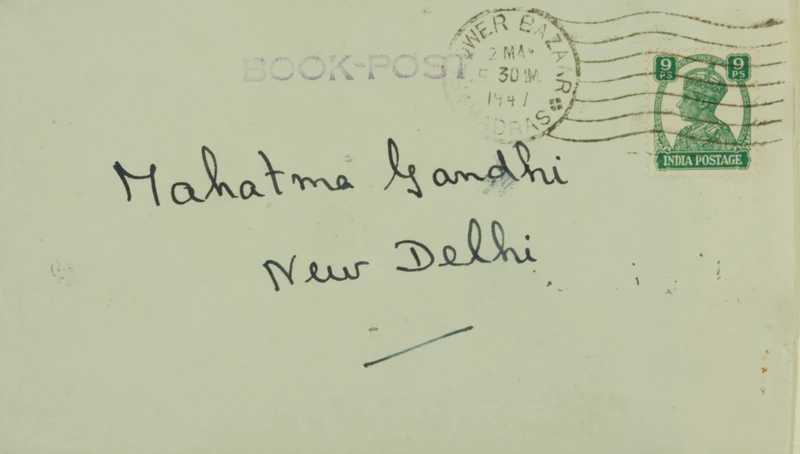 BOOK-POST
FLOWER BAZAAR
2 MAY
5 30 M
1947
MADRAS
9 PS
9 PS
INDIA POSTAGE
Mahatma Gandhi
New Delhi